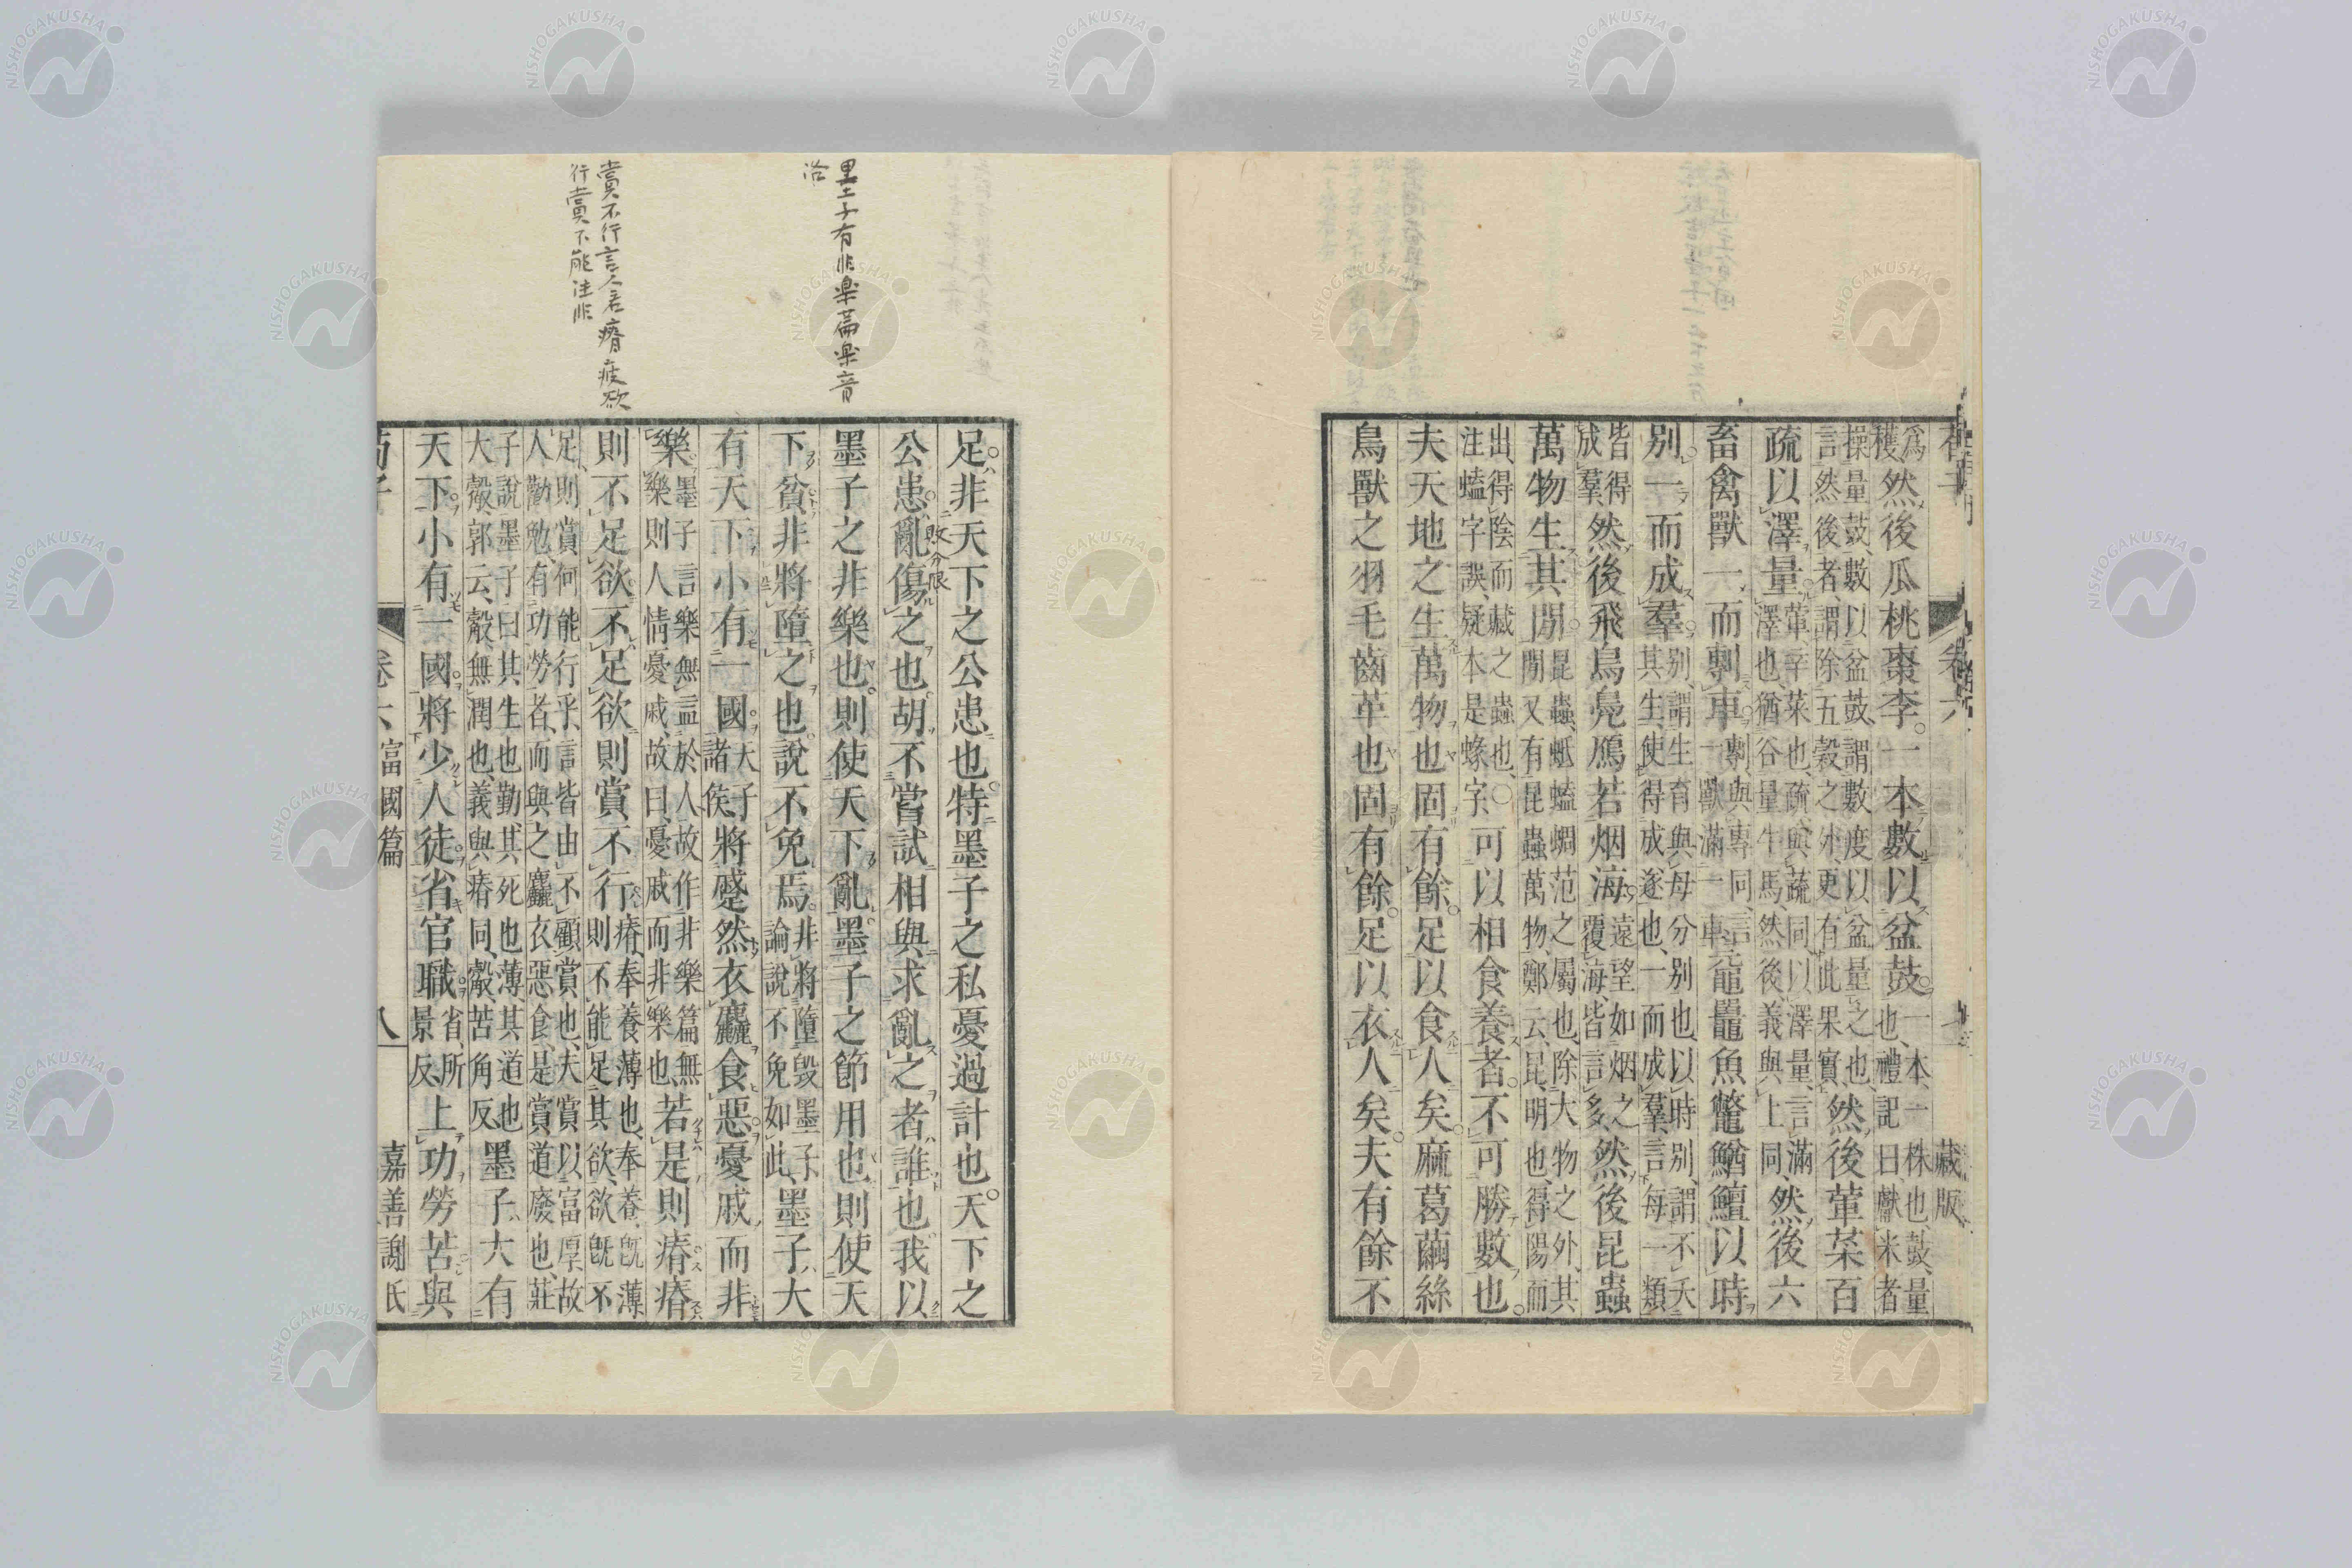 卷六
藏版
爲
穫
然後瓜桃棗李。一本數以盆鼓。
一本、一株也、鼓、量
也、禮記曰、獻米者
操量鼓、數以盆鼓、謂數度以盆量之也、
言然後者、謂除五穀之外、更有此果實、
然後葷菜百
疏以澤量。
葷、辛菜也、疏、與蔬同、以澤量、言滿
澤也、猶谷量牛馬、然後義與上同、
然後六
畜禽獸一而剸車。
剸、與專同、言
一獸滿一車、
黿鼉魚鼈鰌鱣以時
別。一而成羣。
別、謂生育、與母分別也、以時別、謂不夭
其生、使得成遂也、一而成羣、言每一類
皆得
成羣、
然後飛鳥鳧鴈若烟海。
遠望如烟之
覆海、皆言多、
然後昆蟲
萬物生其閒。
昆蟲、蚳 蜩范之屬也、除大物之外、其
閒又有昆蟲萬物、鄭云、昆、明也、得陽而
出、得陰而藏之蟲也、○
注 字誤、疑本是蝝字、
可以相食養者。不可勝數也。
夫天地之生萬物也固有餘。足以食人矣。麻葛繭絲
鳥獸之羽毛齒革也固有餘。足以衣人矣。夫有餘不
墨子有非楽篇楽音
治
賞不行言人君瘠疲欲
行賞下能注非
足。非天下之公患也。特墨子之私憂過計也。天下之
公患。亂傷之也。胡不嘗試相與求亂之者誰也。我以
墨子之非樂也。則使天下亂。墨子之節用也。則使天
下貧。非將墮之也。說不免焉。
非將墮毀墨子、
論說不免如此、
墨子大
有天下。小有一國。
天子
諸侯、
將蹙然衣麤食惡。憂戚而非
樂。
墨子言樂無益於人、故作非樂篇、無
樂、則人情憂戚、故曰、憂戚而非樂也
若是則瘠。瘠
則不足欲。不足欲則賞不行。
瘠、奉養薄也、奉養旣薄、
則不能足其欲、欲旣不
足、則賞何能行乎、言皆由不顧賞也、夫賞以富厚、故
人勸勉、有功勞者、而與之麤衣惡食、是賞道廢也、莊
子說墨子曰、其生也勤、其死也薄、其道也
大觳、郭云、觳、無潤也、義與瘠同、觳、苦角反、
墨子大有
天下。小有一國。將少人徒。省官職。
省、所
景反、
上功勞苦。與
卷六
富國篇
八
嘉善謝氏